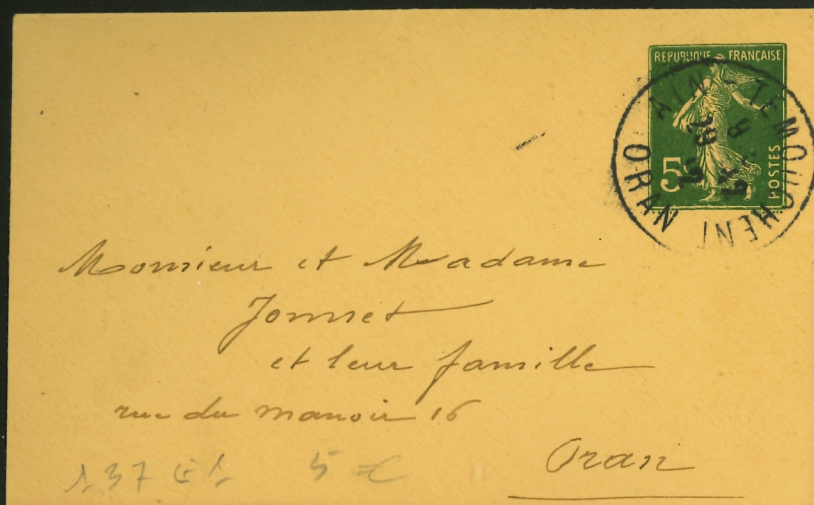 REPUBLIQUE FRANÇAISE
5
POSTES
AIN-TEMOUCHENT
ORAN
Monsieur et Madame
Jonnet
et leur famille
rue du manoir 16
Oran
137 E1 5 €